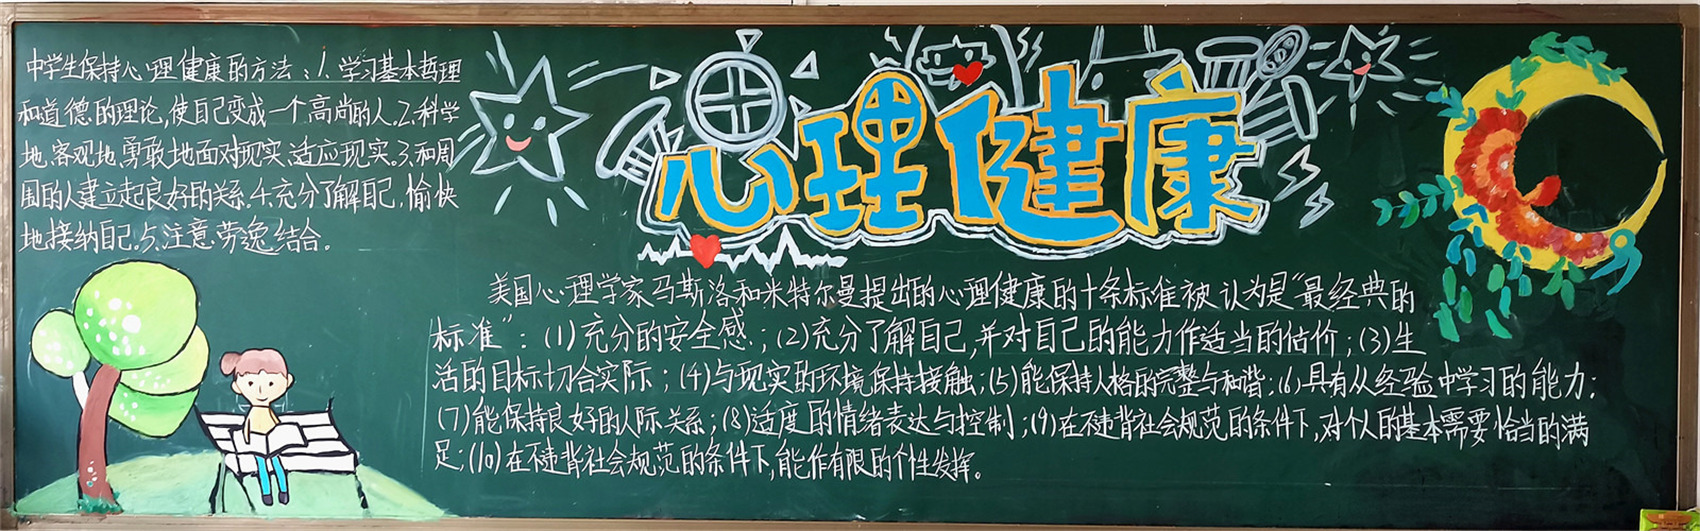 中学生保持心理健康的方法:1.学习基本哲理
和道德的理论,使自己变成一个高尚的人.2.科学
地、客观地、勇敢地面对现实、适应现实.3.和周
围的人建立起良好的关系.4.充分了解自己,愉快
地接纳自己.5.注意劳逸结合。
心理健康
美国心理学家马斯洛和米特尔曼提出的心理健康的十条标准被认为是“最经典的
标准”:(1)充分的安全感;(2)充分了解自己,并对自己的能力作适当的估价;(3)生
活的目标切合实际;(4)与现实的环境保持接触;(5)能保持人格的完整与和谐;(6)具有从经验中学习的能力;
(7)能保持良好的人际关系;(8)适度的情绪表达与控制;(9)在不违背社会规范的条件下,对个人的基本需要恰当的满
足;(10)在不违背社会规范的条件下,能作有限的个性发挥。